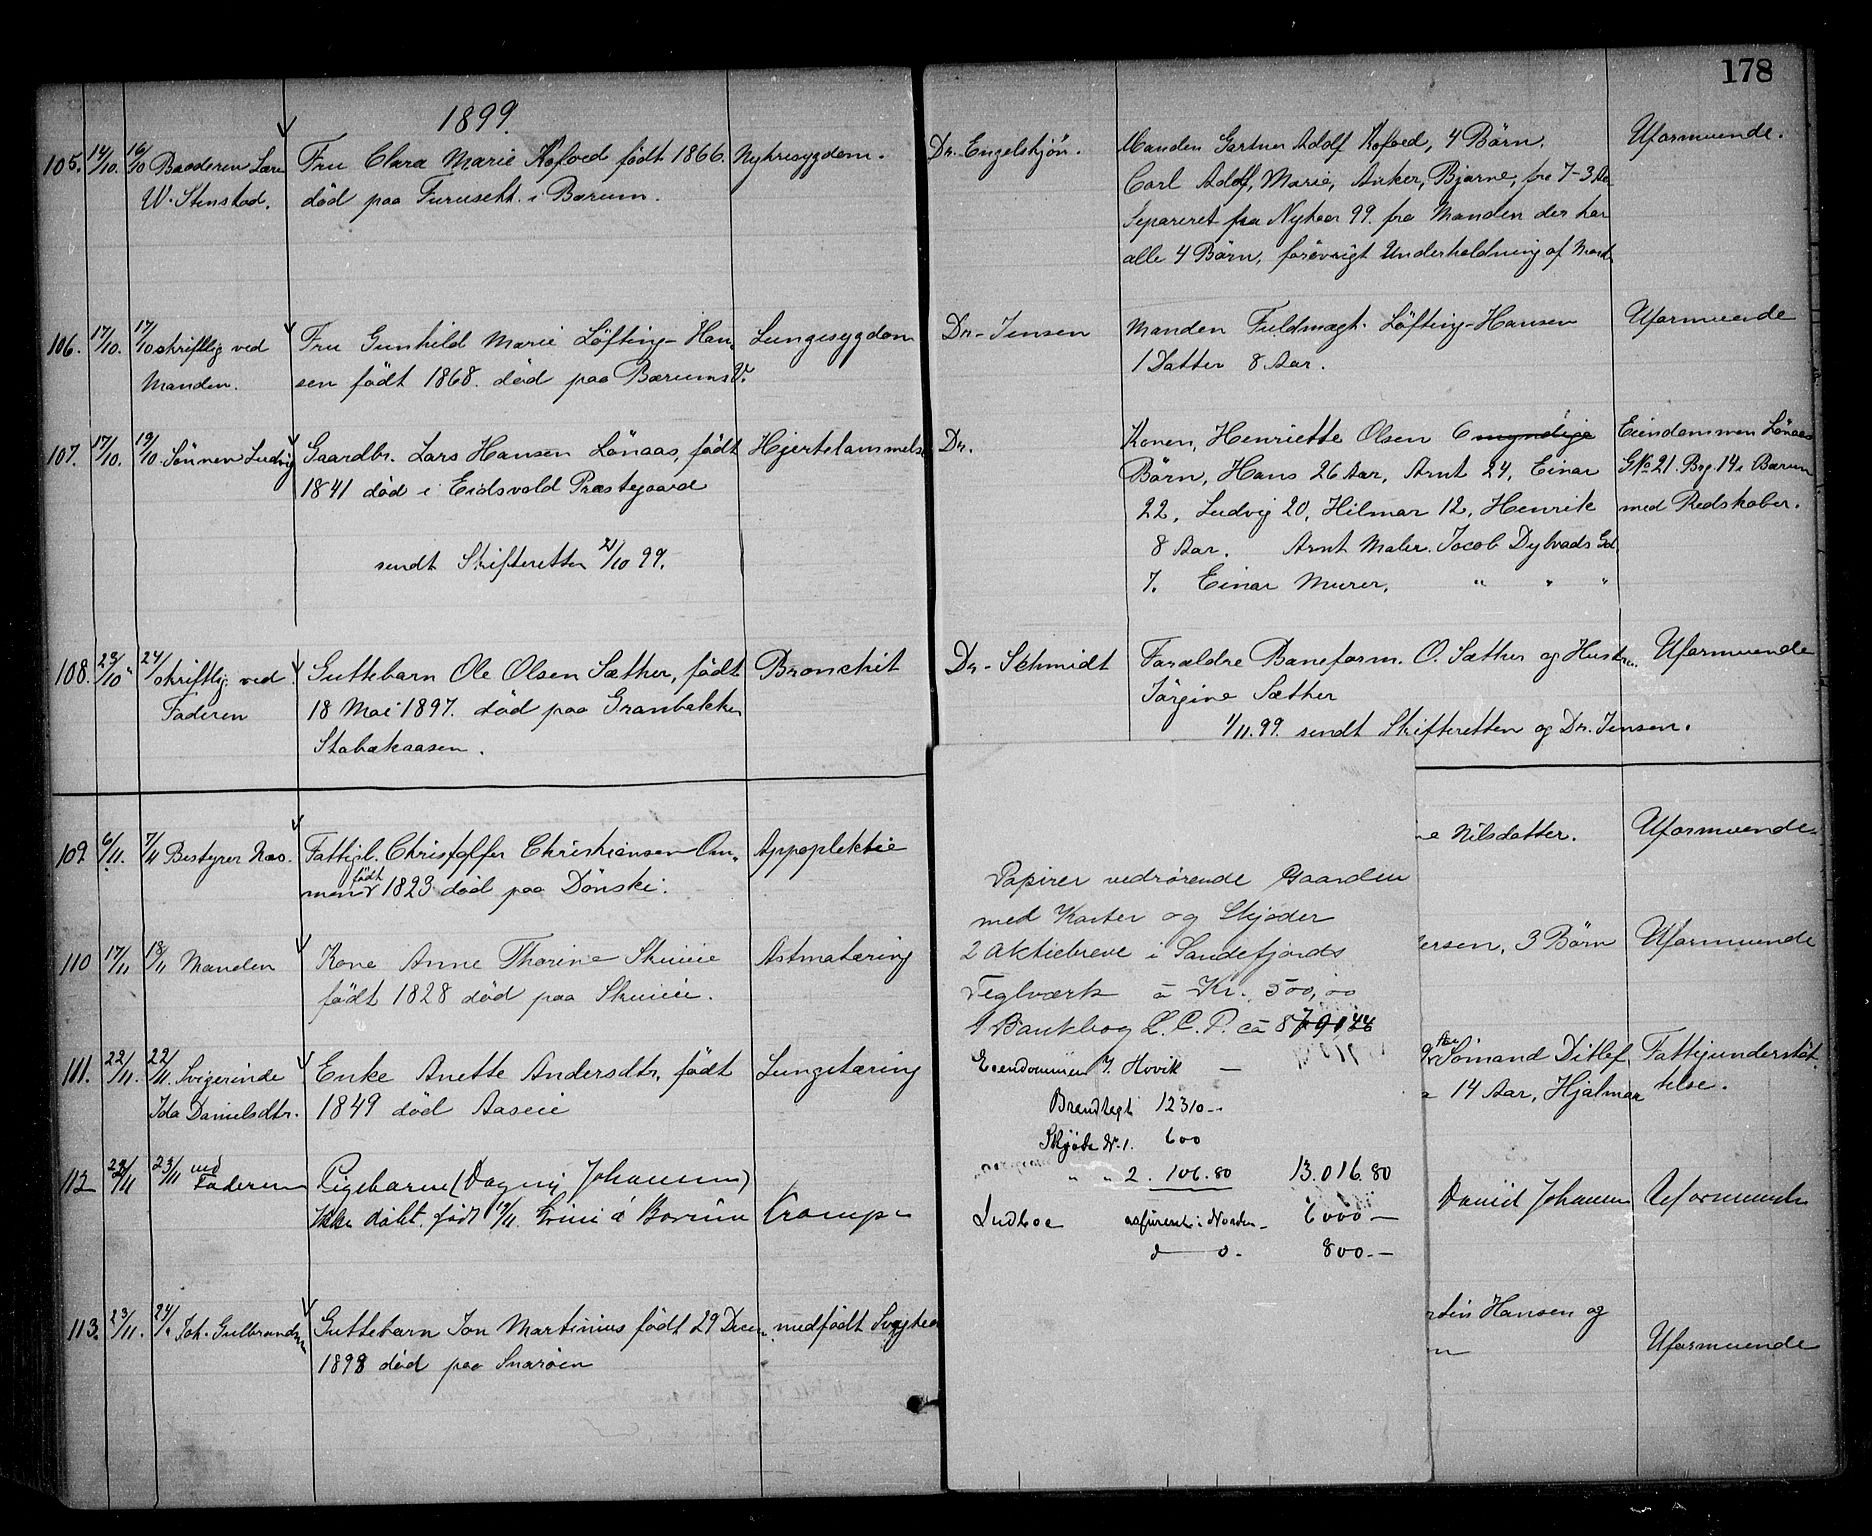 178
1899.
105. 14/10. 16/10 Broderen Lars Fru Clara Marie Kofoed født 1866. Nyresygdom. Dr. Engelskjön. Manden Gartner Adolf Kofoed, 4 Börn. Uformuende.
W. Stenstad. død paa Furusett i Bærum. Carl Adolf, Marie, Anker, Bjarne, fra 7-3 Aar
Separeret fra Nytaar 99. fra Manden der har
alle 4 Börn, forövrigt Underholdning af Mand.
106. 17/10. 17/10 skriftlig ved Fru Gunhild Marie Löfting-Han- Lungesygdom Dr. Jensen Manden Fuldmægt. Löfting-Hansen Uformuende
Manden. sen født 1868. død paa Bærums V. 1 Datter 8 Aar.
107. 17/10. 19/10. Sönnen Ludvig Gaardbr. Lars Hansen Lönaas, født Hjertelammelse Dr. Konen, Henriette Olsen 6 myndige Eiendommen Lönaas
1841 død i Eidsvold Præstegaard Börn, Hans 26 Aar, Arnt 24, Einar GNo 21. Brg. 14 i Bærum
22, Ludvig 20, Hilmar 12, Henrik med Redskaber.
sendt Skifteretten 21/10 99. 8 Aar. Arnt Maler. Jacob Dybvads Gd.
7. Einar Murer. " " "
108. 23/10 24/ skriftlig ved Guttebarn Ole Olsen Sæther, født Bronchit Dr. Schmidt Forældre Baneform. O. Sæther og Hustru Uformuende
Faderen 18 Mai 1897. død paa Granbakken Jörgine Sæther
Stabækaasen. 1/11.99. sendt Skifteretten og Dr. Jensen.
109 6/11. 7/11 Bestyrer Næs. Fattigl. Christoffer Christiansen Om- Appoplektie ne Nilsdatter. Uformuende
født
mand 1823 død paa Dönski.
110 17/11 18/11 Manden Kone Anne Thorine Skuiie Astmatæring ersen, 3 Börn Uformuende
født 1828 død paa Skuiie.
111. 22/11. 22/11. Svigerinde Enke Anette Andersdtr, født Lungetæring Sömand Ditlef Fattigunderstöt
Ida Danielsdtr. 1849 død Aaseie 14 Aar, Hjalmar telse.
112 22/11 23/11 ved Faderen Pigebarn (Dagny Johansen) David Johansen Uformuende
Ikke døbt født 19/11. Grini i Bærum Krampe
113. 23/11. 24/ Joh. Gulbrandsen Guttebarn Jon Martinius født 29 Decem. medfødt Svaghed Hansen og
1898 død paa Snaröen Uformuende
Papirer vedrörende Gaarden
med Karter og Skjöder
2 Aktiebreve i Sandefjords
Teglværk á Kr. 500,00
1 Bankbog L. C. P. ca
Eiendommen 7. Hovik —
Brandtagt 12310-
Skjöde Nr. 1. 600
" " 2. 106.80 13.016.80
Indboe assureret i Norden- 6000.—
d o. 800.—